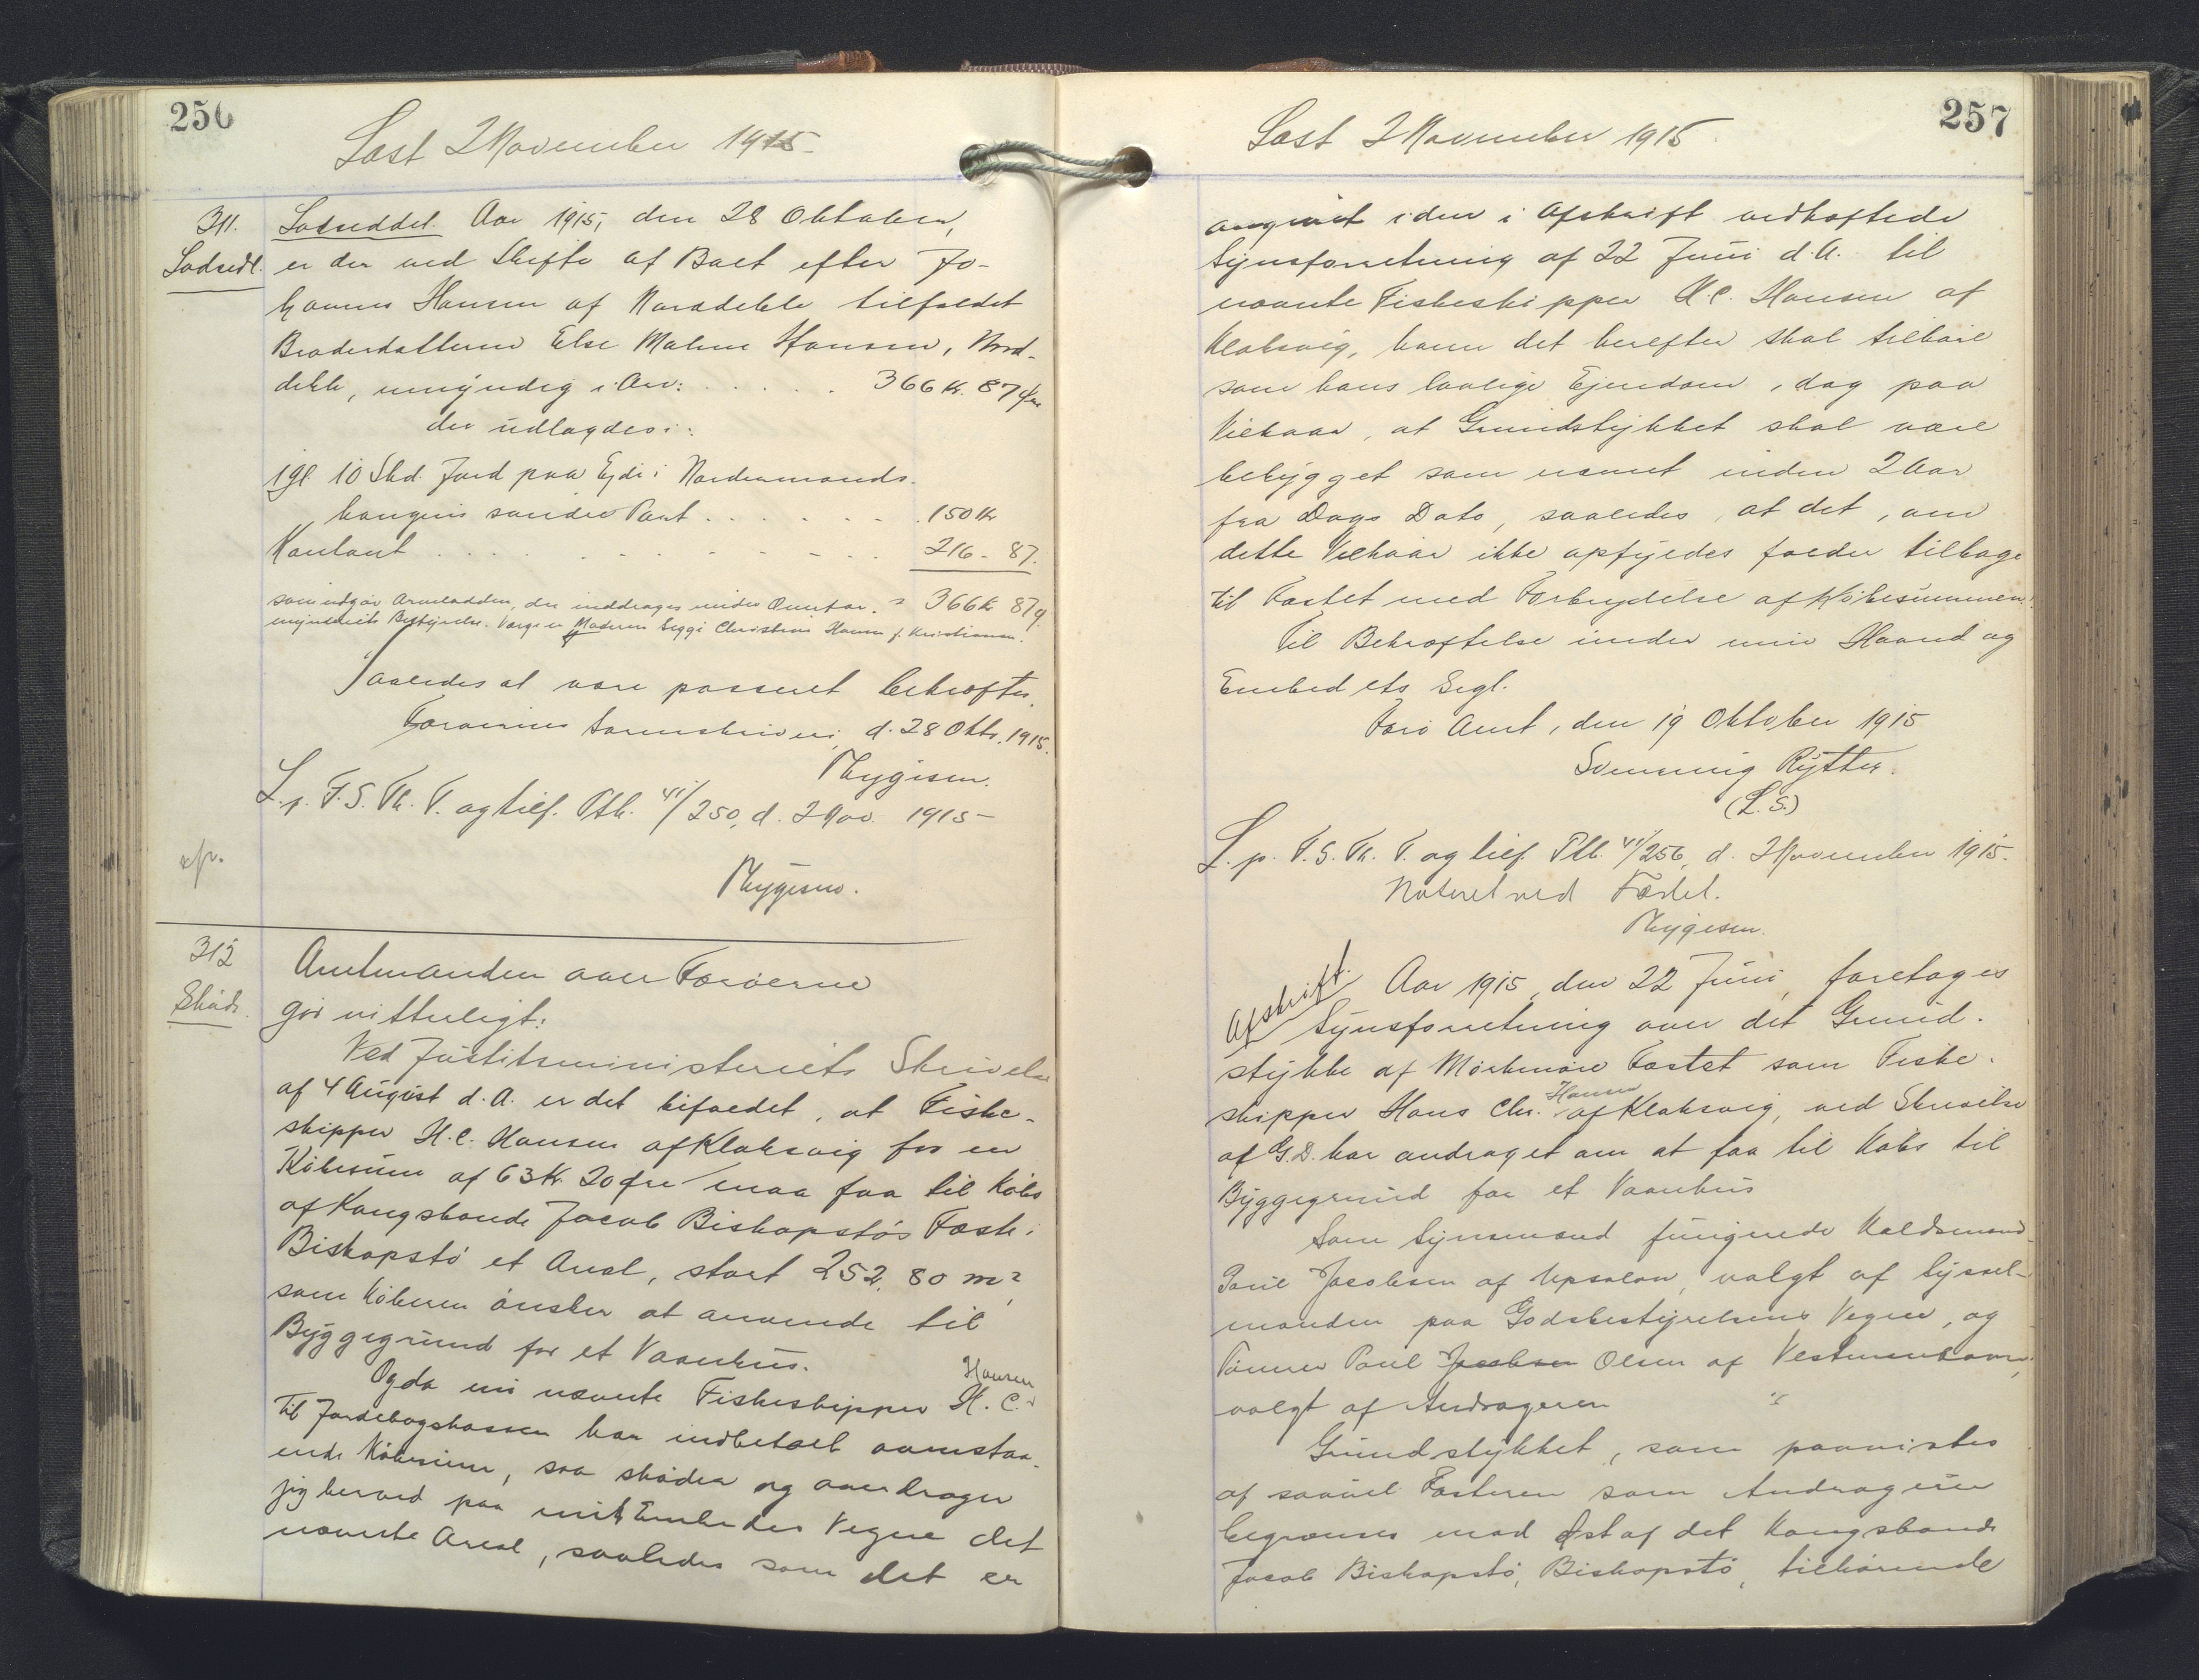 256
Læst 2 November 1915
311.
Lodsedl.
Lodseddel. Aar 1915, den 28 Oktober,
er der ved Skifte af Boet efter Jo-
hannes Hansen af Norddeble tilfaldet
Broderdatteren Else Malene Hansen, Nord-
deble, umyndig i Arv: . . . . . 366 Kr. 87 Øre
der udlagdes i:
1 gl 10 Skd. Jord paa Ejde i Nordenmands-
haugens søndre Part . . . . . . 150 Kr
Kontant . . . . . . . . 216 - 87.
som udgør Arvelodden, der inddrages under Overfor- = 366 Kr 87 Ø.
mynderiets Bestyrelse. Værge er Moderen Siggi Christine Hansen f. Kristiansen.
Saaledes at være passeret bekræftes.
Færøernes Sorenskriveri, d. 28 Oktb. 1915.
Thygesen.
L. p. F. S. Th. T. og tilf. Ptb. VI/250, d. 2 Nov. 1915
Thygesen.
312
Skøde.
Amtmanden over Færøerne
gør vitterligt:
Ved Justitsministeriets Skrivelse
af 4 August d.A. er det bifaldet, at Fiske-
skipper H.C. Hansen af Klaksvig for en
Købesum af 63 Kr. 20 Øre maa faa til Købs
af Kongsbonde Jacob Biskopstøs Fæste i
Biskopstø et Areal, stort 252,80 m²,
som Køberen ønsker at anvende til
Byggegrund for et Vaanhus.
Og da nu nævnte Fiskeskipper H. C. Hansen
til Jordebogskassen har indbetalt ovenstaa-
ende Købesum, saa skøder og overdrager
jeg herved paa mit Embedes Vegne det
nævnte Areal, saaledes som det er
257
Læst 2 November 1915
angivet i den i Afskrift vedhæftede
Synsforretning af 22 Juni d.A. til
nævnte Fiskeskipper H.C. Hansen af
Klaksvig, hvem det herefter skal tilhøre
som hans lovlige Ejendom, dog paa
Vilkaar, at Grundstykket skal være
bebygget som nævnt inden 2 Aar
fra Dags Dato, saaledes at det, om
dette Vilkaar ikke opfyldes falder tilbage
til Fæstet med Fortrydelse af Købesummen.
Til Bekræftelse under min Haand og
Embedets Segl.
Færø Amt, den 19 Oktober 1915
Svenning Rytter.
(L.S.)
L. p. F. S. Th. T. og tilf. Ptb. VI/256, d. 2 November 1915.
Noteret ved Fæstet.
Thygesen.
Afskrift.
Aar 1915, den 22 Juni, foretoges
Synsforretning over det Grund-
stykke af Mørkenøre Fæstet som Fiske-
skipper Hans Chr. Hansen af Klaksvig, ved Skrivelse
af G.D. har andraget om at faa til Købs til
Byggegrund for et Vaanhus
Som Synsmænd fungerede Kaldsmand
Poul Jacobsen af Upsalon, valgt af Syssel-
manden paa Godsbestyrelsens Vegne, og
Tømrer Poul Jacobsen Olsen af Vestmenhavn,
valgt af Andrageren
Grundstykket, som paavistes
af saavel Fæsteren som Andrageren
begrænses mod Øst af det Kongsbonde
Jacob Biskopstø, Biskopstø, tilhørende